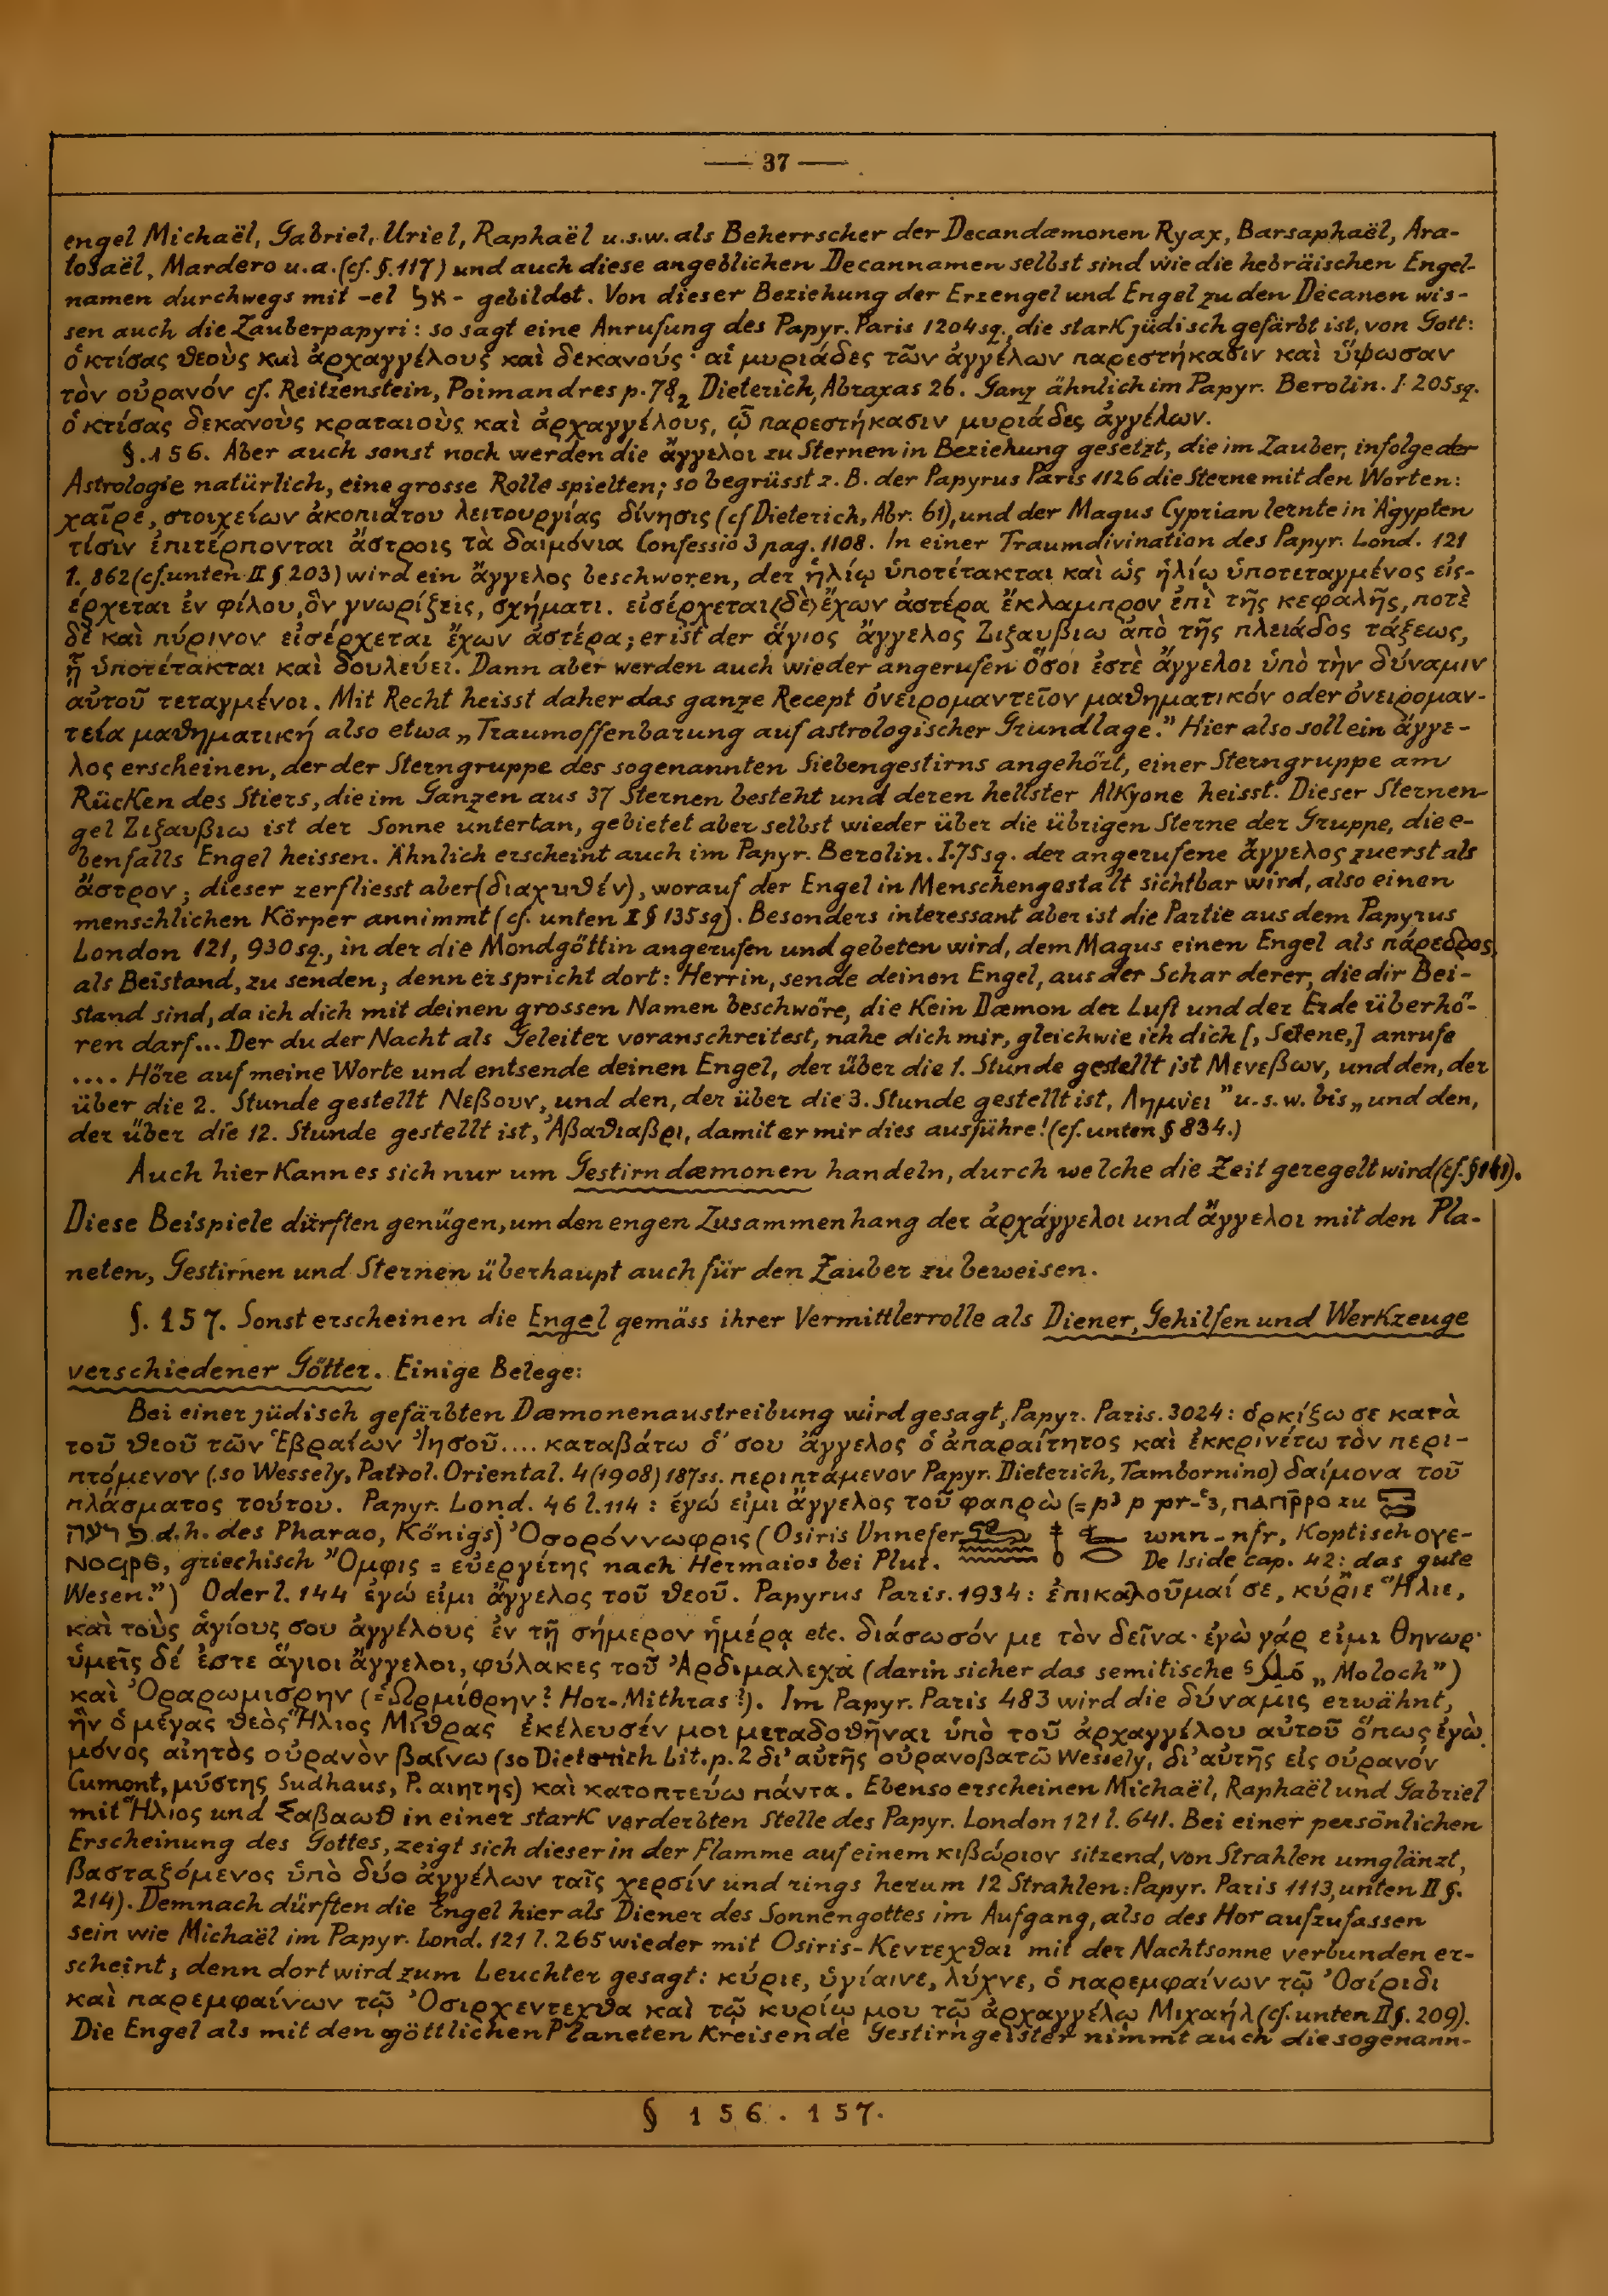 — 37 —
engel Michaël, Gabriel, Uriel, Raphaël u.s.w. als Beherrscher der Decandæmonen Ryax, Barsaphaël, Ara-
tosaël, Mardero u.a. (cf. §. 117) und auch diese angeblichen Decannamen selbst sind wie die hebräischen Engel-
namen durchwegs mit -el אל - gebildet. Von dieser Beziehung der Erzengel und Engel zu den Decanen wis-
sen auch die Zauberpapyri: so sagt eine Anrufung des Papyr. Paris 1204 sq., die stark jüdisch gefärbt ist, von Gott:
ὁ κτίσας θεοὺς καὶ ἀρχαγγέλους καὶ δεκανούς· αἱ μυριάδες τῶν ἀγγέλων παρεστήκασιν καὶ ὕψωσαν
τὸν οὐρανόν cf. Reitzenstein, Poimandres p. 78₂ Dieterich, Abraxas 26. Ganz ähnlich im Papyr. Berolin. I 205 sq.
ὁ κτίσας δεκανοὺς κραταιοὺς καὶ ἀρχαγγέλους, ᾧ παρεστήκασιν μυριάδες ἀγγέλων.
§. 156. Aber auch sonst noch werden die ἄγγελοι zu Sternen in Beziehung gesetzt, die im Zauber, infolge der
Astrologie natürlich, eine grosse Rolle spielten; so begrüsst z. B. der Papyrus Paris 1126 die Sterne mit den Worten:
χαῖρε, στοιχείων ἀκοπιάτου λειτουργίας δίνησις (cf Dieterich, Abr. 61), und der Magus Cyprian lernte in Ägypten
τίσιν ἐπιτέρπονται ἄστροις τὰ δαιμόνια Confessio 3 pag. 1108. In einer Traumdivination des Papyr. Lond. 121
l. 862 (cf. unten II § 203) wird ein ἄγγελος beschworen, der ἡλίῳ ὑποτέτακται καὶ ὡς ἡλίῳ ὑποτεταγμένος εἰσ-
έρχεται ἐν φίλου, ὃν γνωρίζεις, σχήματι. εἰσέρχεται ⟨δὲ⟩ ἔχων ἀστέρα ἔκλαμπρον ἐπὶ τῆς κεφαλῆς, ποτὲ
δὲ καὶ πύρινον εἰσέρχεται ἔχων ἀστέρα; er ist der ἅγιος ἄγγελος Ζιζαυβιω ἀπὸ τῆς πλειάδος τάξεως,
ᾗ ὑποτέτακται καὶ δουλεύει. Dann aber werden auch wieder angerufen ὅσοι ἐστὲ ἄγγελοι ὑπὸ τὴν δύναμιν
αὐτοῦ τεταγμένοι. Mit Recht heisst daher das ganze Recept ὀνειρομαντεῖον μαθηματικόν oder ὀνειρομαν-
τεία μαθηματική also etwa „Traumoffenbarung auf astrologischer Grundlage." Hier also soll ein ἄγγε-
λος erscheinen, der der Sterngruppe des sogenannten Siebengestirns angehört, einer Sterngruppe am
Rücken des Stiers, die im Ganzen aus 37 Sternen besteht und deren hellster Alkyone heisst. Dieser Sternen-
gel Ζιζαυβιω ist der Sonne untertan, gebietet aber selbst wieder über die übrigen Sterne der Gruppe, die e-
benfalls Engel heissen. Ähnlich erscheint auch im Papyr. Berolin. I. 75 sq. der angerufene ἄγγελος zuerst als
ἄστρον; dieser zerfliesst aber (διαχυθέν), worauf der Engel in Menschengestalt sichtbar wird, also einen
menschlichen Körper annimmt (cf. unten II § 135 sq). Besonders interessant aber ist die Partie aus dem Papyrus
London 121, 930 sq., in der die Mondgöttin angerufen und gebeten wird, dem Magus einen Engel als πάρεδρος,
als Beistand, zu senden; denn er spricht dort: Herrin, sende deinen Engel, aus der Schar derer, die dir Bei-
stand sind, da ich dich mit deinen grossen Namen beschwöre, die kein Dæmon der Luft und der Erde überhö-
ren darf... Der du der Nacht als Geleiter voranschreitest, nahe dich mir, gleichwie ich dich [, Selene,] anrufe
.... Höre auf meine Worte und entsende deinen Engel, der über die 1. Stunde gestellt ist Μενεβων, und den, der
über die 2. Stunde gestellt Νεβουν, und den, der über die 3. Stunde gestellt ist, Λημνει" u.s.w. bis „und den,
der über die 12. Stunde gestellt ist, Ἀβαθιαβρι, damit er mir dies ausführe! (cf. unten § 834.)
Auch hier kann es sich nur um Gestirndæmonen handeln, durch welche die Zeit geregelt wird
Diese Beispiele dürften genügen, um den engen Zusammenhang der ἀρχάγγελοι und ἄγγελοι mit den Pla-
neten, Gestirnen und Sternen überhaupt auch für den Zauber zu beweisen.
§. 157. Sonst erscheinen die Engel gemäss ihrer Vermittlerrolle als Diener, Gehilfen und Werkzeuge
verschiedener Götter. Einige Belege:
Bei einer jüdisch gefärbten Dæmonenaustreibung wird gesagt, Papyr. Paris. 3024: ὁρκίζω σε κατὰ
τοῦ θεοῦ τῶν Ἑβραίων Ἰησοῦ.... καταβάτω ὁ σου ἄγγελος ὁ ἀπαραίτητος καὶ ἐκκρινέτω τὸν περι-
πτόμενον (so Wessely, Patrol. Oriental. 4 (1908) 187 ss. περιπτάμενον Papyr. Dieterich, Tambornino) δαίμονα τοῦ
πλάσματος τούτου. Papyr. Lond. 46 l. 114: ἐγώ εἰμι ἄγγελος τοῦ φαπρὼ (= pꜣ p pr-ꜥꜣ, ⲡⲁⲡⲣ̄ⲣⲟ zu
פרעה d.h. des Pharao, Königs) Ὀσορόννωφρις (Osiris Unnefer wnn-nfr, Koptisch ⲟⲩⲉ-
ⲛⲟϥⲣⲉ, griechisch Ὄμφις = εὐεργέτης nach Hermaios bei Plut. De Iside cap. 42: das gute
Wesen.") Oder l. 144 ἐγώ εἰμι ἄγγελος τοῦ θεοῦ. Papyrus Paris. 1934: ἐπικαλοῦμαί σε, κύριε Ἥλιε,
καὶ τοὺς ἁγίους σου ἀγγέλους ἐν τῇ σήμερον ἡμέρᾳ etc. διάσωσόν με τὸν δεῖνα· ἐγὼ γάρ εἰμι Θηνωρ·
ὑμεῖς δέ ἐστε ἅγιοι ἄγγελοι, φύλακες τοῦ Ἀρδιμαλεχα (darin sicher das semitische „Moloch")
καὶ Ὀραρωμισρην (= Ὡρμίθρην? Hor-Mithras?). Im Papyr. Paris 483 wird die δύναμις erwähnt,
ἣν ὁ μέγας θεὸς Ἥλιος Μίθρας ἐκέλευσέν μοι μεταδοθῆναι ὑπὸ τοῦ ἀρχαγγέλου αὐτοῦ ὅπως ἐγὼ
μόνος αἰητὸς οὐρανὸν βαίνω (so Dieterich Lit. p. 2 δι' αὐτῆς οὐρανοβατῶ Wessely, δι' αὐτῆς εἰς οὐρανόν
Cumont, μύστης Sudhaus, P. αιητης) καὶ κατοπτεύω πάντα. Ebenso erscheinen Michaël, Raphaël und Gabriel
mit Ἥλιος und Σαβαωθ in einer stark verderbten Stelle des Papyr. London 121 l. 641. Bei einer persönlichen
Erscheinung des Gottes, zeigt sich dieser in der Flamme auf einem κιβώριον sitzend, von Strahlen umglänzt,
βασταζόμενος ὑπὸ δύο ἀγγέλων ταῖς χερσίν und rings herum 12 Strahlen: Papyr. Paris 1113, unten II §.
214). Demnach dürften die Engel hier als Diener des Sonnengottes im Aufgang, also des Hor aufzufassen
sein wie Michaël im Papyr. Lond. 121 l. 265 wieder mit Osiris-Κεντεχθαι mit der Nachtsonne verbunden er-
scheint; denn dort wird zum Leuchter gesagt: κύριε, ὑγίαινε, λύχνε, ὁ παρεμφαίνων τῷ Ὀσίριδι
καὶ παρεμφαίνων τῷ Ὀσιρχεντεχθα καὶ τῷ κυρίῳ μου τῷ ἀρχαγγέλῳ Μιχαήλ (cf. unten II §. 209).
Die Engel als mit den göttlichen Planeten kreisende Gestirngeister nimmt auch die sogenann-
§ 156. 157.